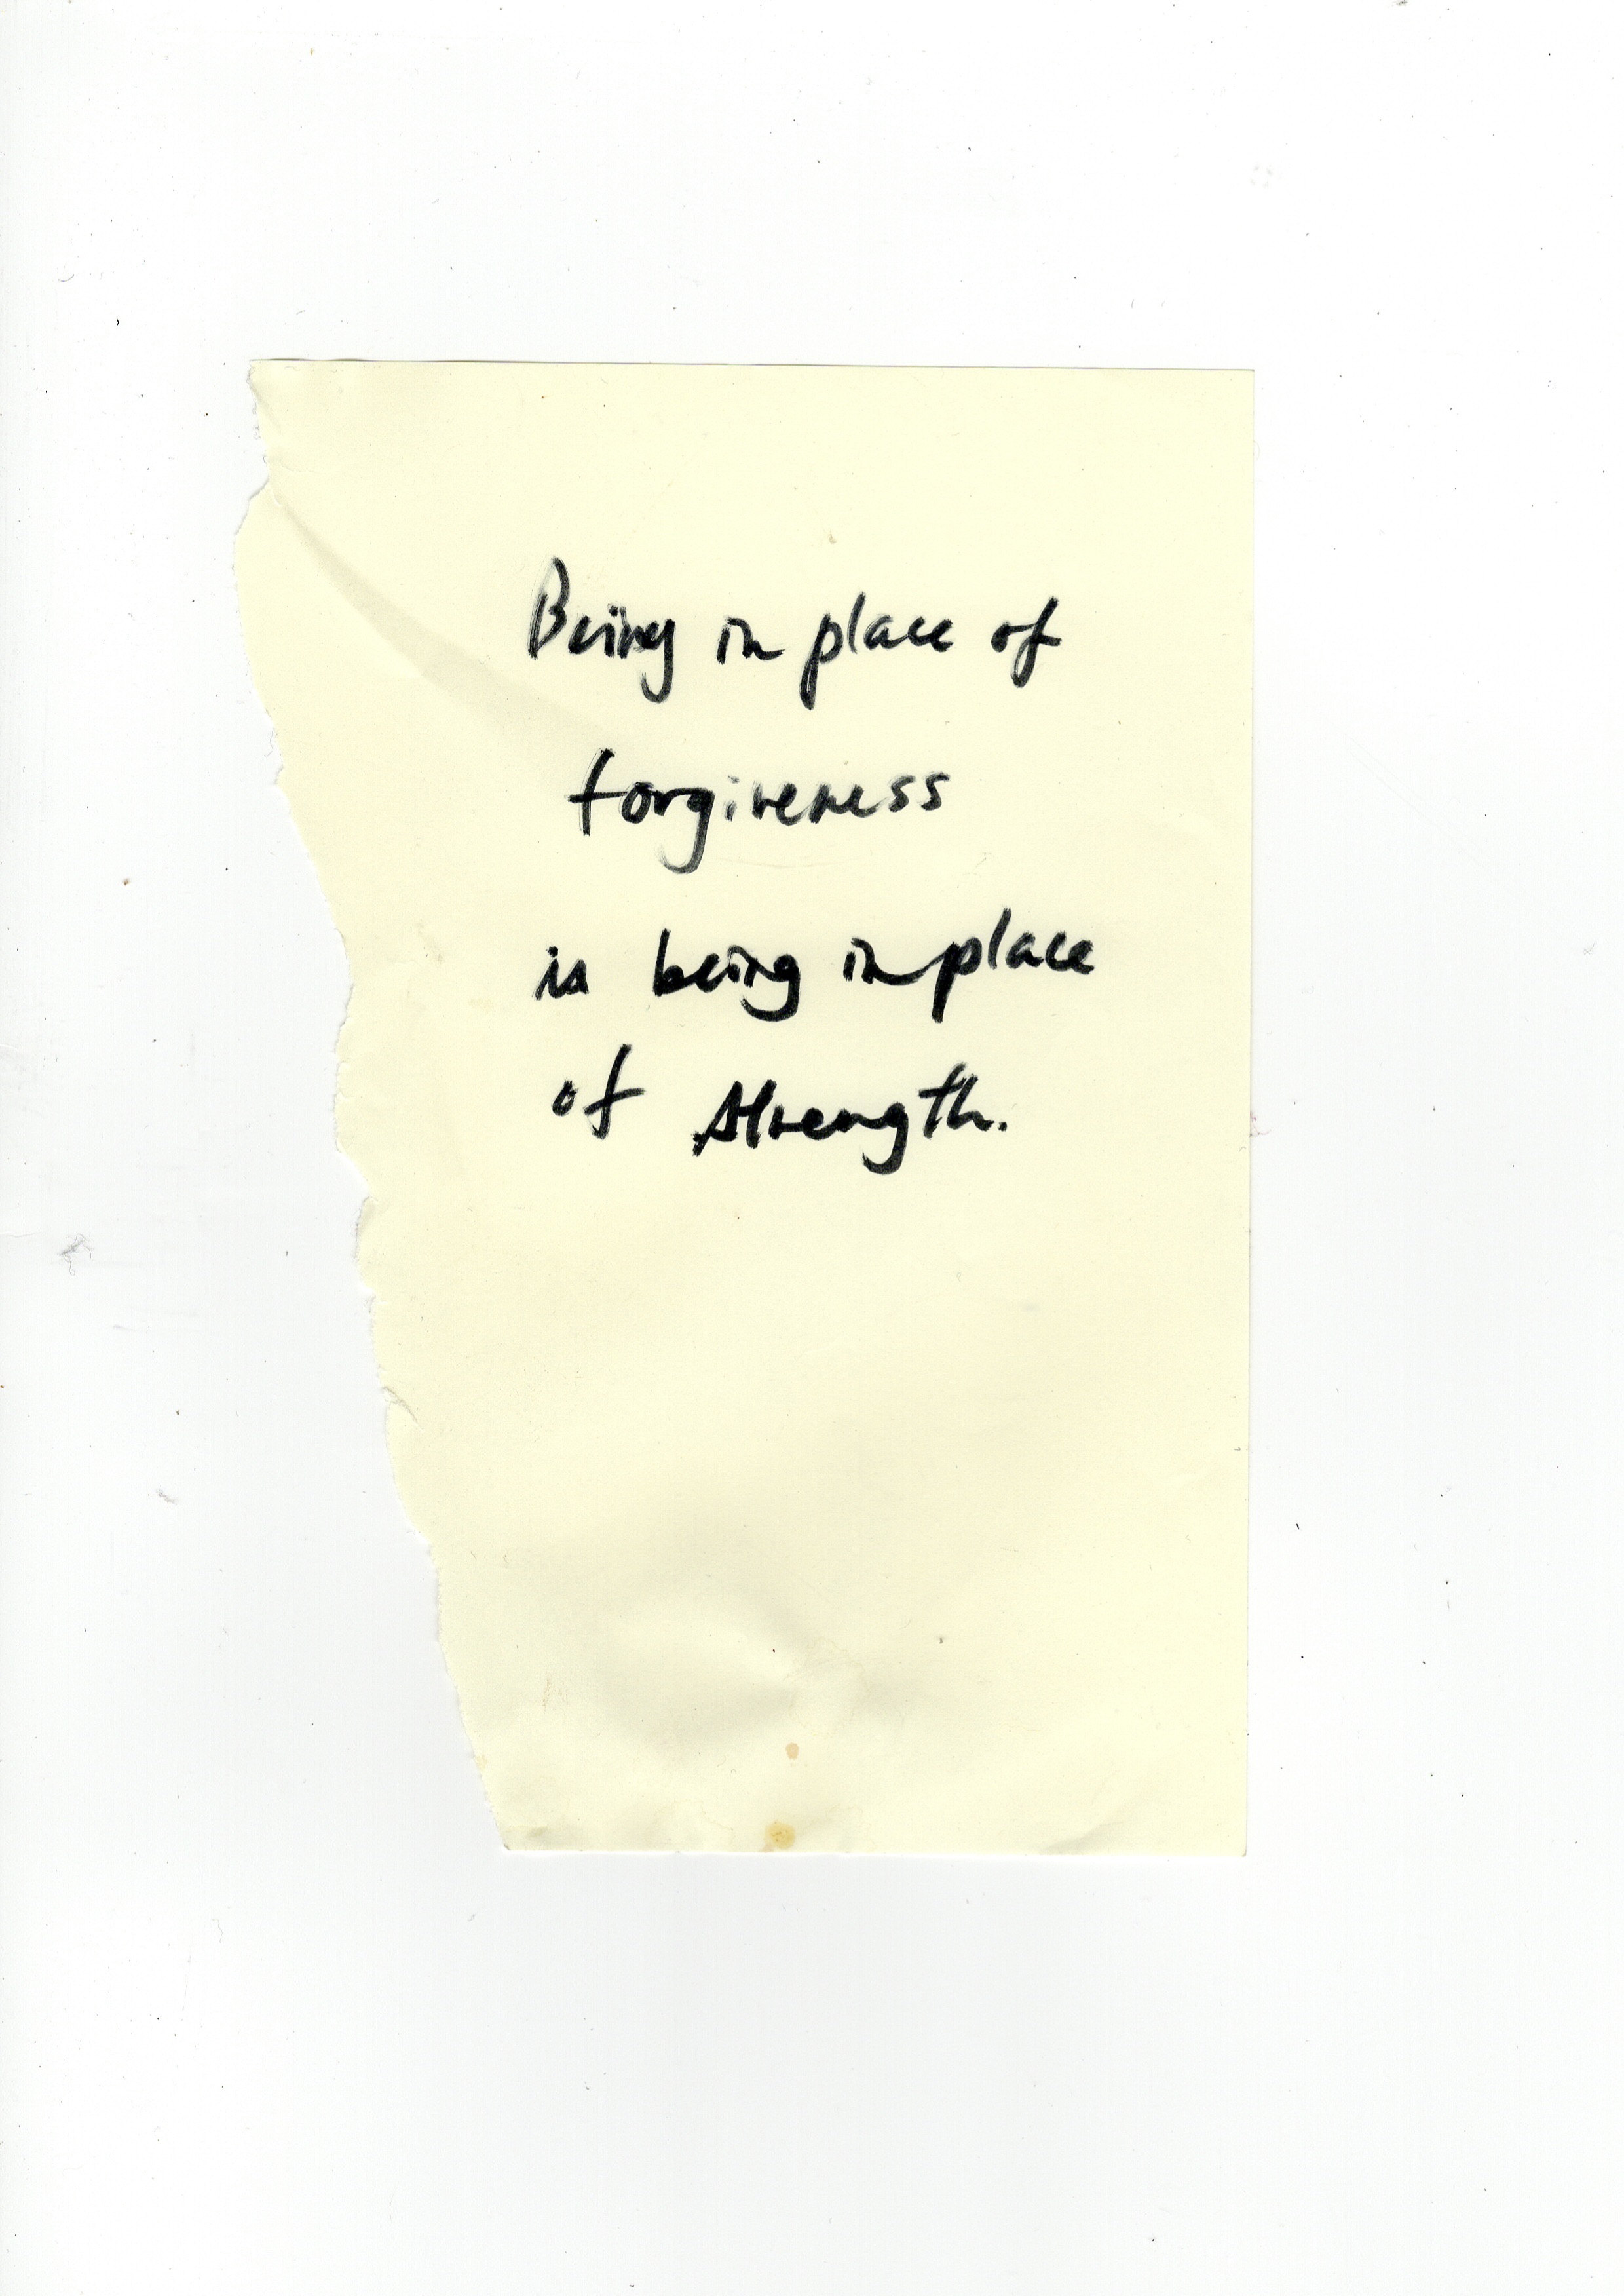 Being in place of
forgiveness
is being in place
of strength.